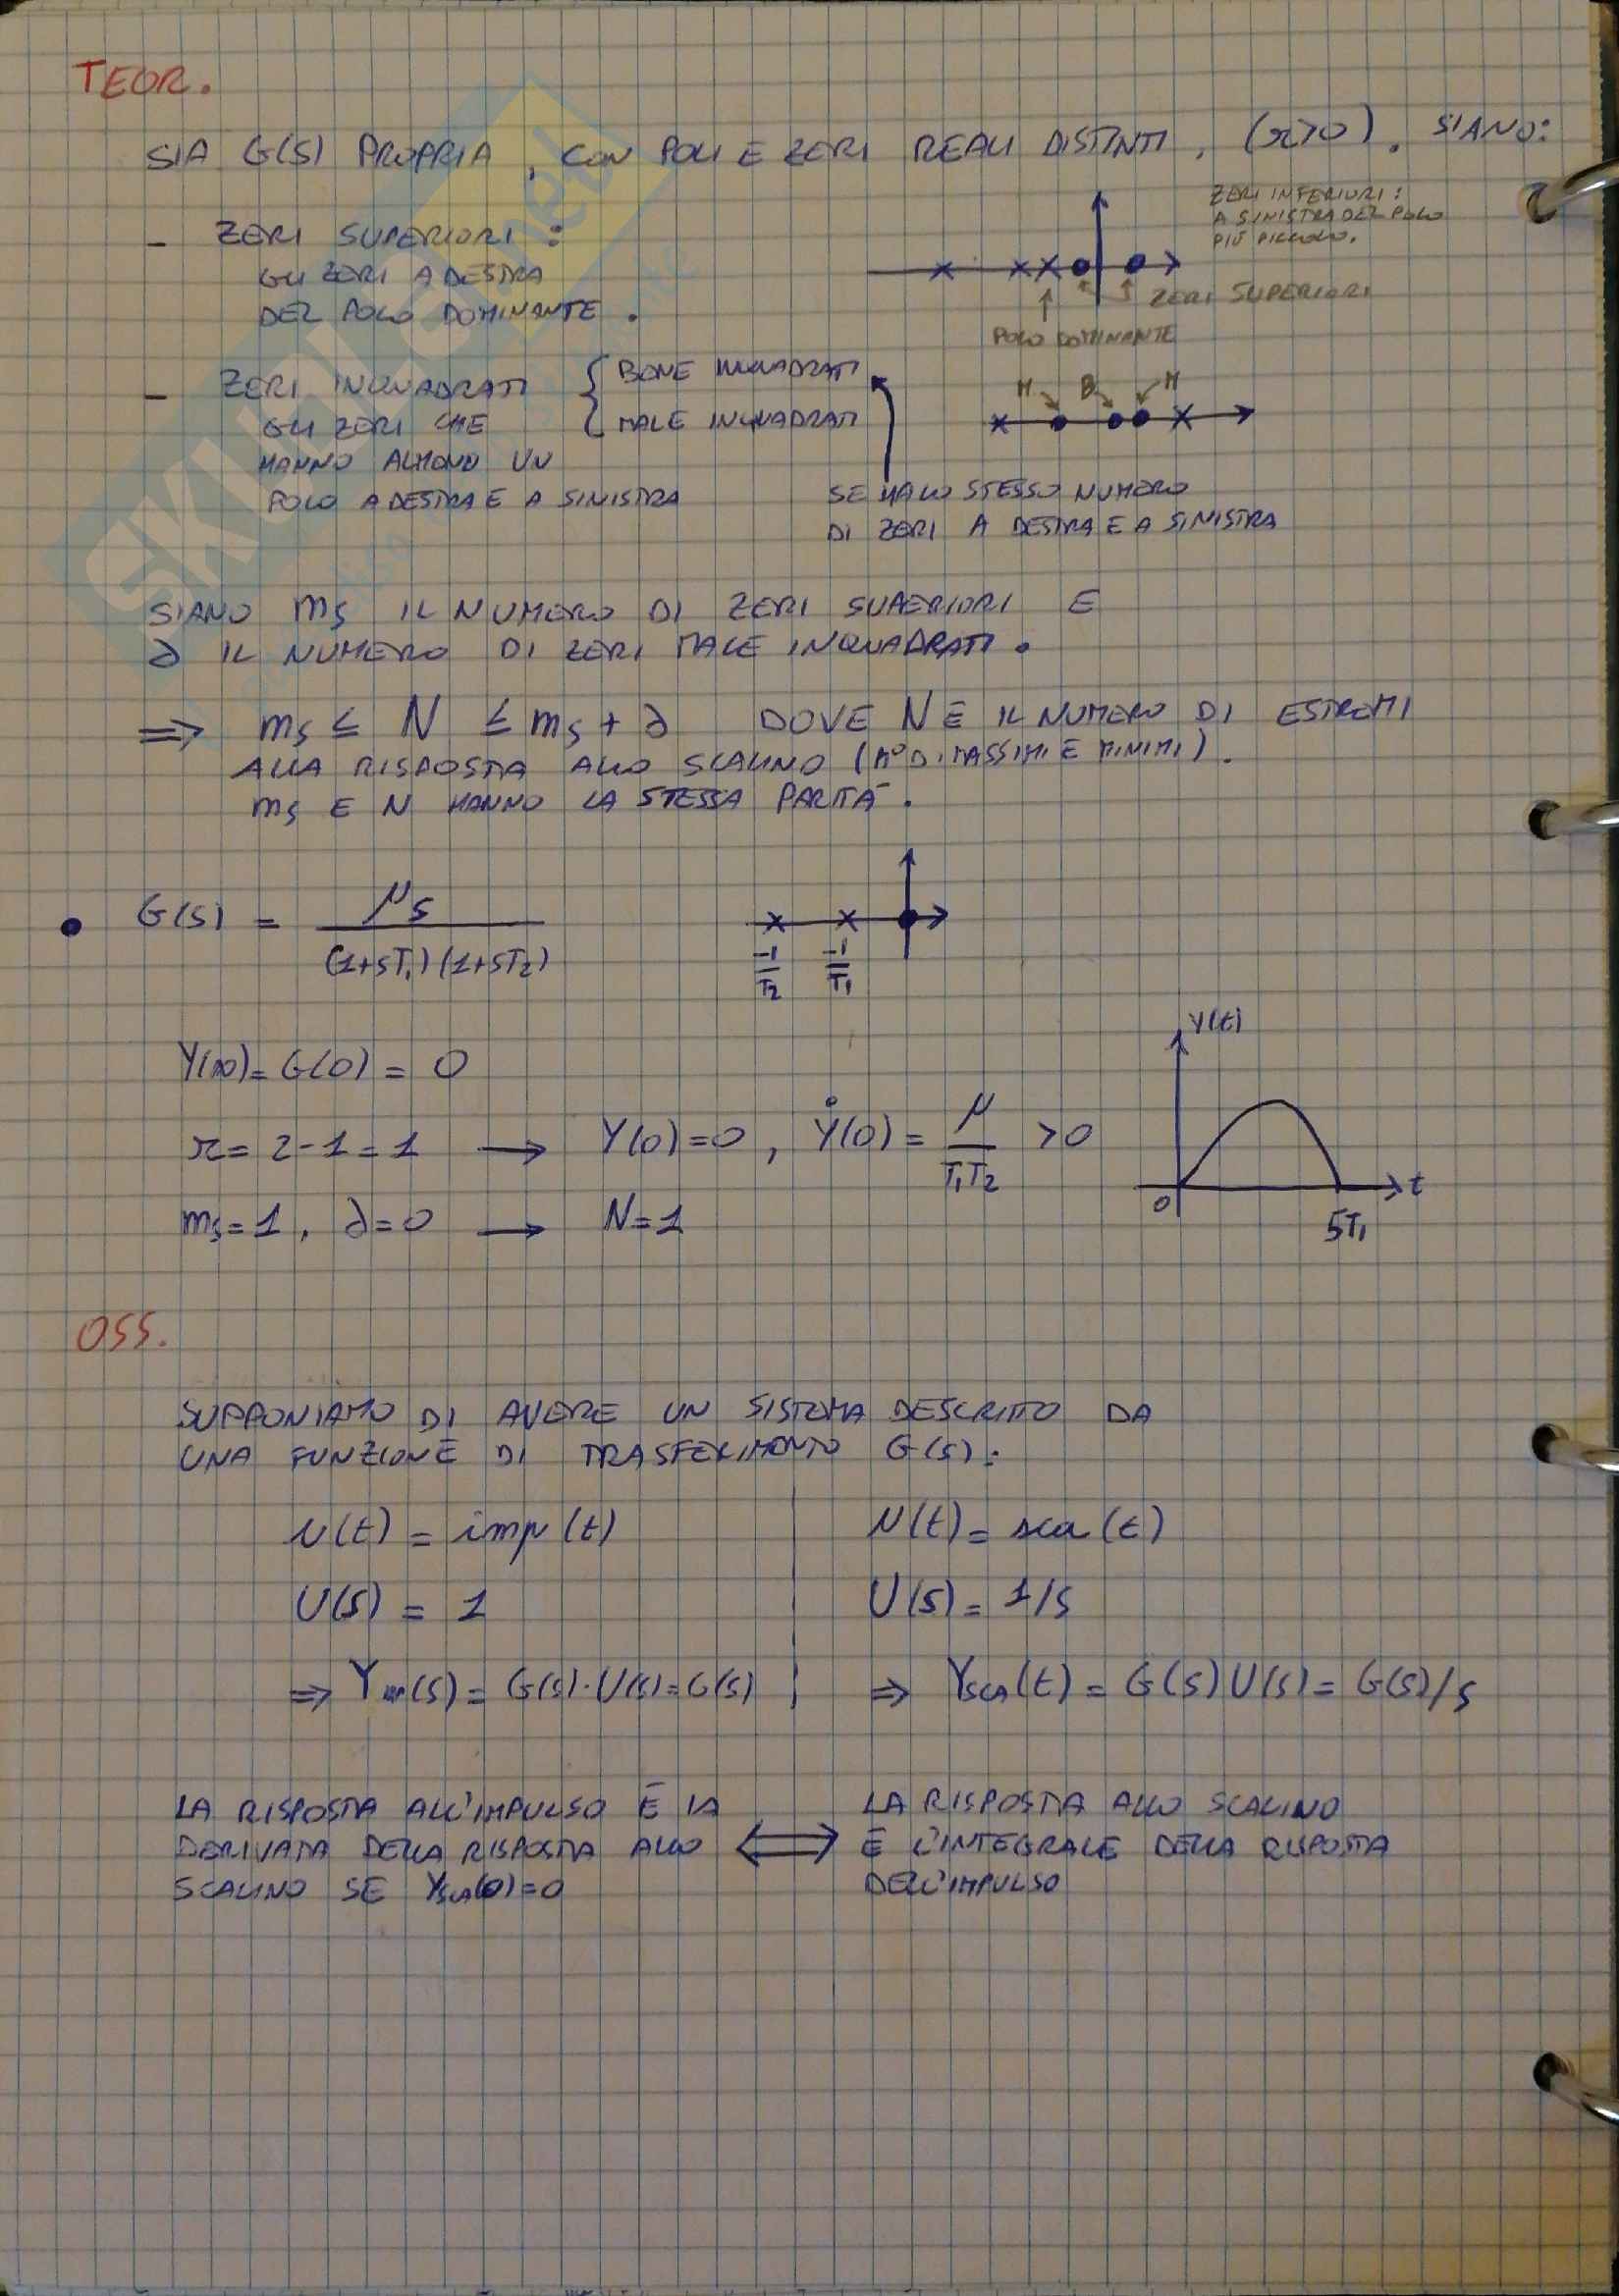 TEOR.
SIA G(S) PROPRIA, CON POLI E ZERI REALI DISTINTI, (r>0). SIANO:
- ZERI SUPERIORI:
GLI ZERI A DESTRA
DEL POLO DOMINANTE.
ZERI INFERIORI:
A SINISTRA DEL POLO
PIÙ PICCOLO.
ZERI SUPERIORI
POLO DOMINANTE
- ZERI INQUADRATI { BENE INQUADRATI
GLI ZERI CHE { MALE INQUADRATI
HANNO ALMENO UN
POLO A DESTRA E A SINISTRA
M B M
SE HA LO STESSO NUMERO
DI ZERI A DESTRA E A SINISTRA
SIANO ms IL NUMERO DI ZERI SUPERIORI E
∂ IL NUMERO DI ZERI MALE INQUADRATI.
⇒ ms ≤ N ≤ ms + ∂ DOVE N È IL NUMERO DI ESTREMI
ALLA RISPOSTA ALLO SCALINO (N° DI MASSIMI E MINIMI).
ms E N HANNO LA STESSA PARITÀ.
• G(S) = μs / (1+sT1)(1+sT2)
-1/T2 -1/T1
Y(∞) = G(0) = 0
r = 2-1 = 1 → Y(0)=0, Ẏ(0) = μ/T1T2 >0
ms=1, ∂=0 → N=1
Y(t)
0 5T1 t
OSS.
SUPPONIAMO DI AVERE UN SISTEMA DESCRITTO DA
UNA FUNZIONE DI TRASFERIMENTO G(S):
u(t) = imp(t)
U(S) = 1
⇒ Yimp(S) = G(S)·U(S)=G(S)
u(t) = sca(t)
U(S) = 1/S
⇒ Ysca(t) = G(S)U(S) = G(S)/s
LA RISPOSTA ALL'IMPULSO È LA
DERIVATA DELLA RISPOSTA ALLO
SCALINO SE Ysca(0)=0
⟺
LA RISPOSTA ALLO SCALINO
È L'INTEGRALE DELLA RISPOSTA
DELL'IMPULSO
SKUOLA.net